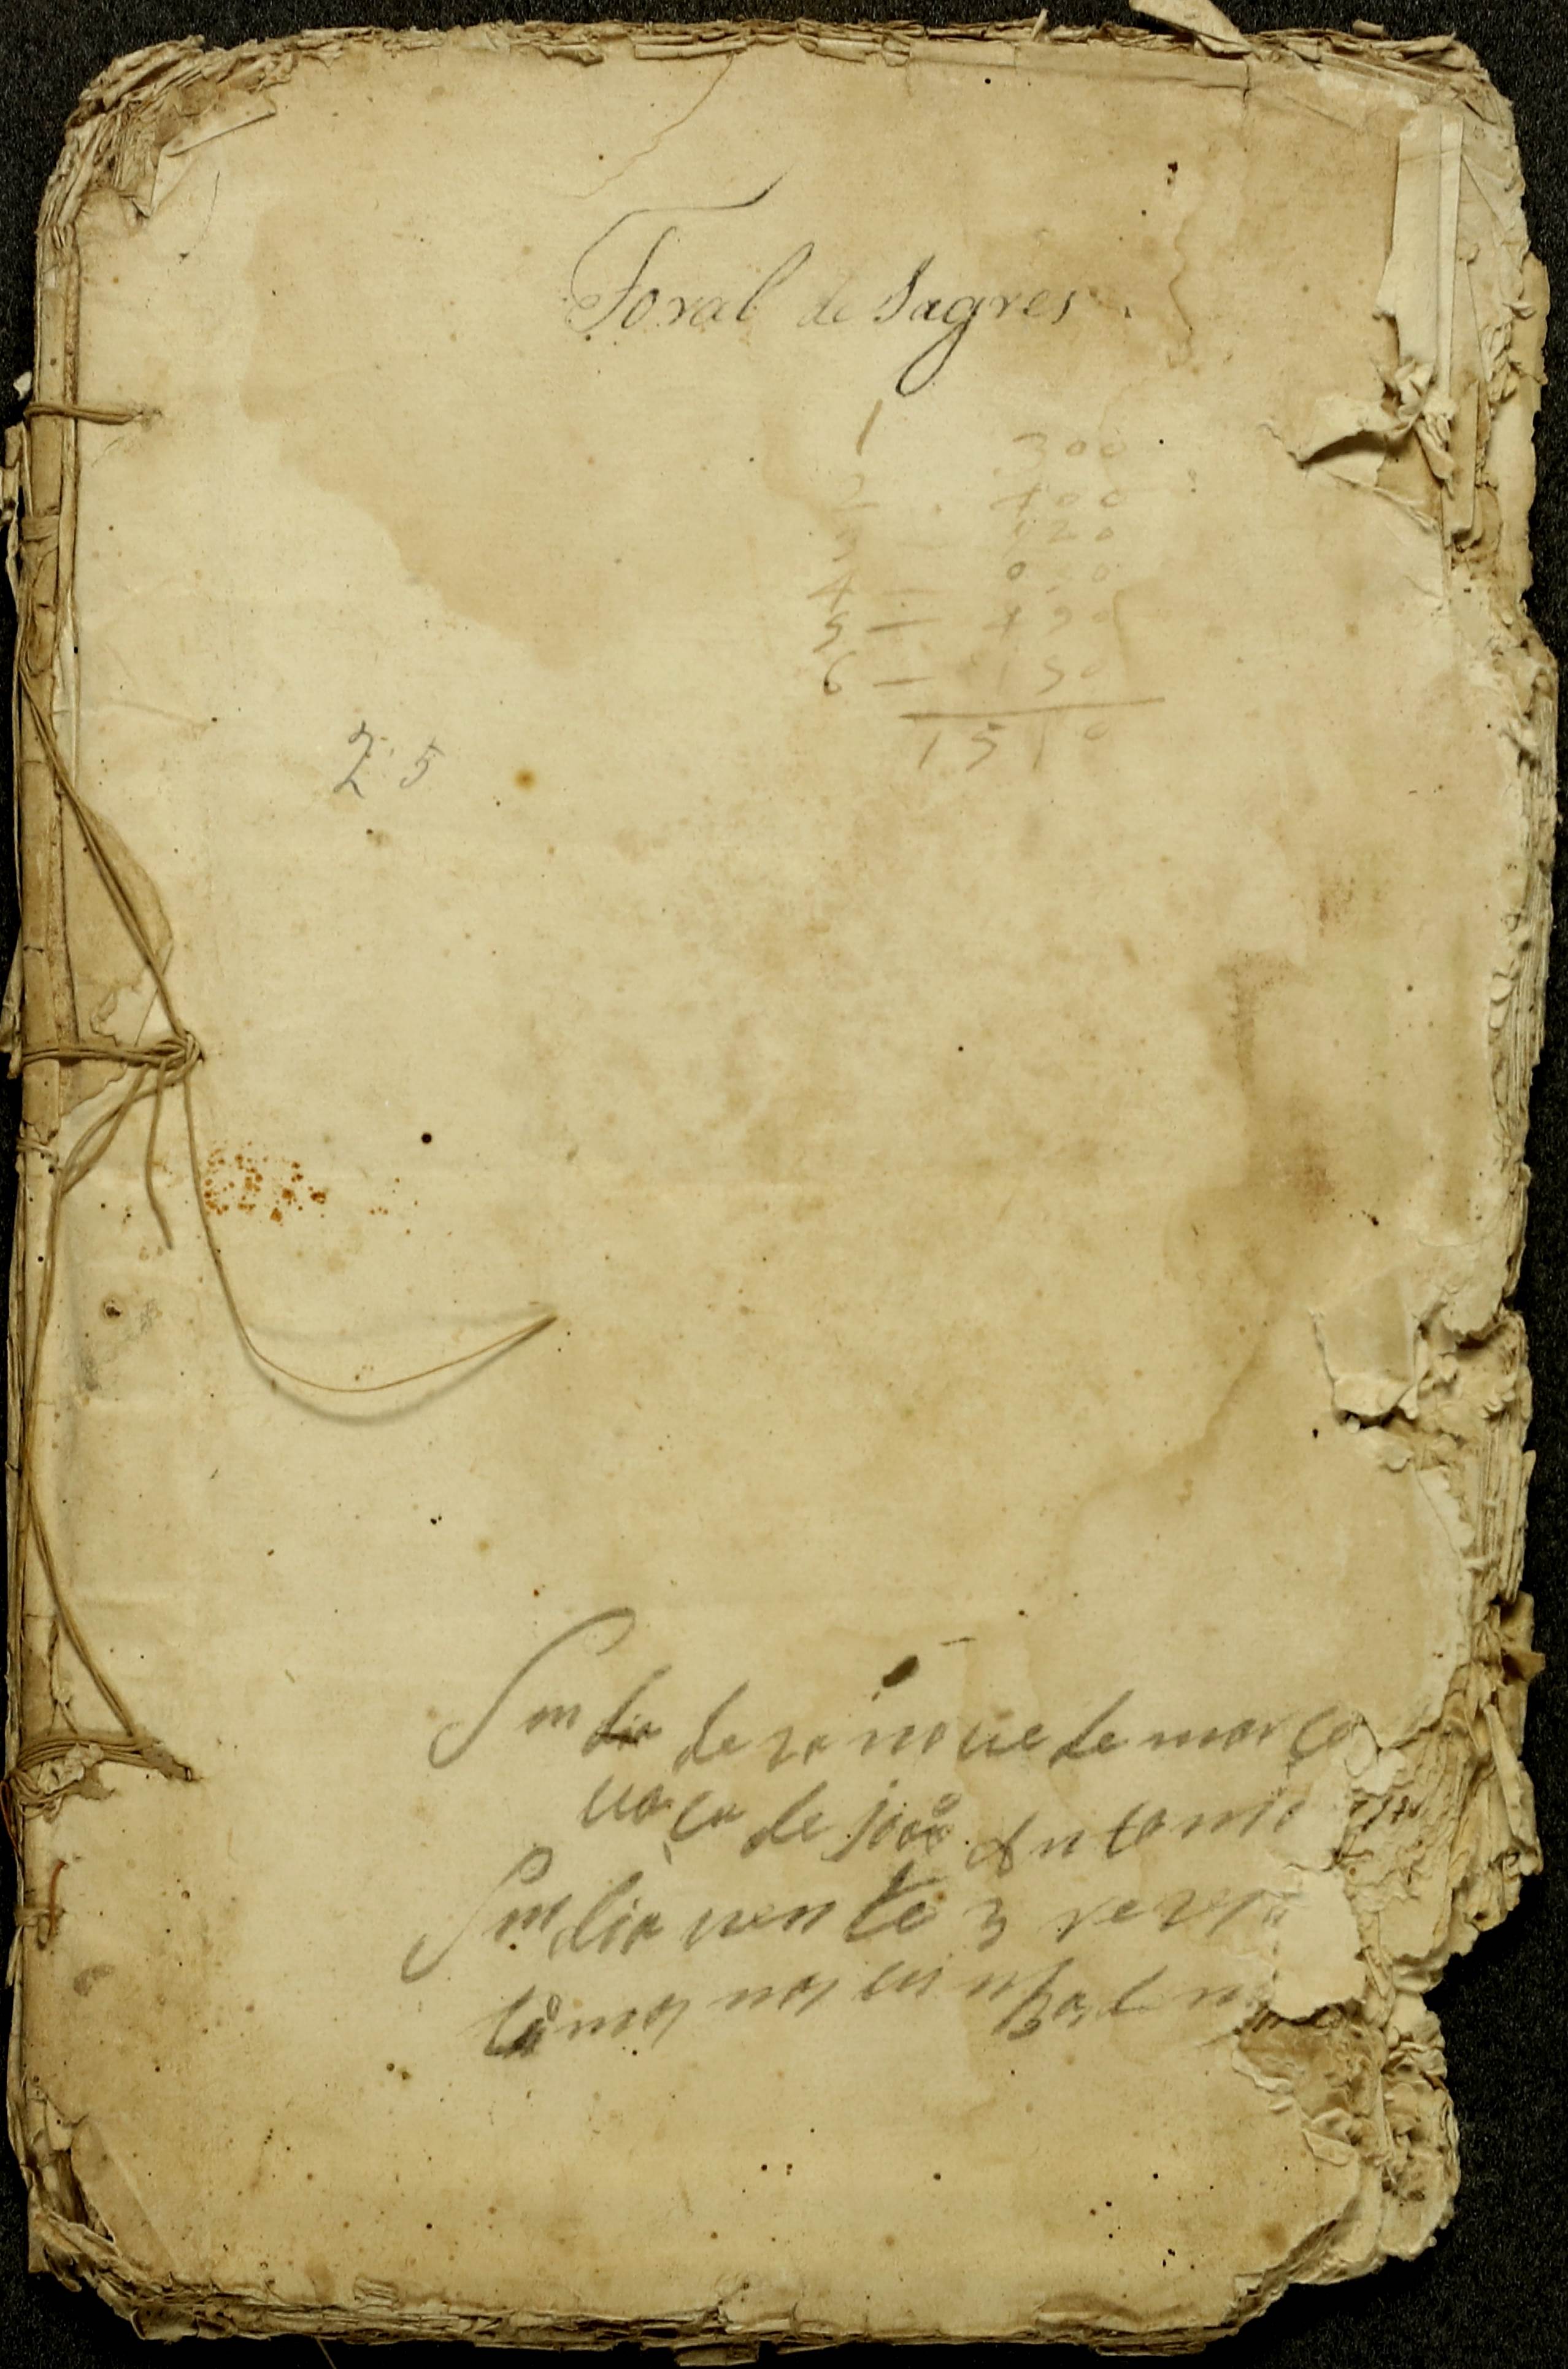 Foral de Sagres.
1 300
2 400
3 — 120
4 —
5 — 490
6 — 150
1510
25
Em dia dezanove de março
vaca de joão Antonio
Em dia vente 3
tamos nos